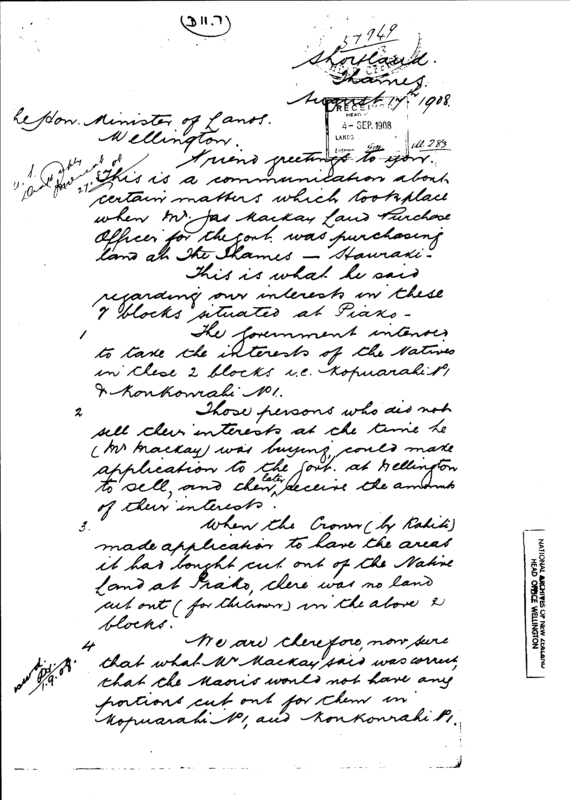 (B 11.7)
57949
Shortland.
HEAD OFFICE
Thames.
August 17th 1908.
RECEIVED
HEAD
4 - SEP. 1908
LANDS
he Hon. Minister of Lands.
Wellington.
A friend greetings to you.
This is a communication about
certain matters which took place
when Mr. Jas Mackay Land Purchase
Officer for the Govt. was purchasing
land at The Thames — Hauraki -
This is what he said
regarding our interests in these
7 blocks situated at Piako -
1 The Government intends
to take the interests of the Natives
in these 2 blocks i.e. Kopuarahi No 1
& Koukourahi No 1.
2 Those persons who did not
sell their interests at the time he
(Mr Mackay) was buying, could make
application to the Govt. at Wellington
to sell, and then later, receive the amounts
of their interests.
3. When the Crown (by Kahiti)
made application to have the areas
it had bought cut out of the Native
Land at Piako, there was no land
cut out (for the Crown) in the above 2
blocks.
4 We are therefore, now sure
that what Mr Mackay said was correct,
that the Maoris would not have any
portions cut out for them in
Kopuarahi No 1, and Koukourahi No 1.
1.9.08.
NATIONAL ARCHIVES OF NEW ZEALAND
HEAD OFFICE WELLINGTON